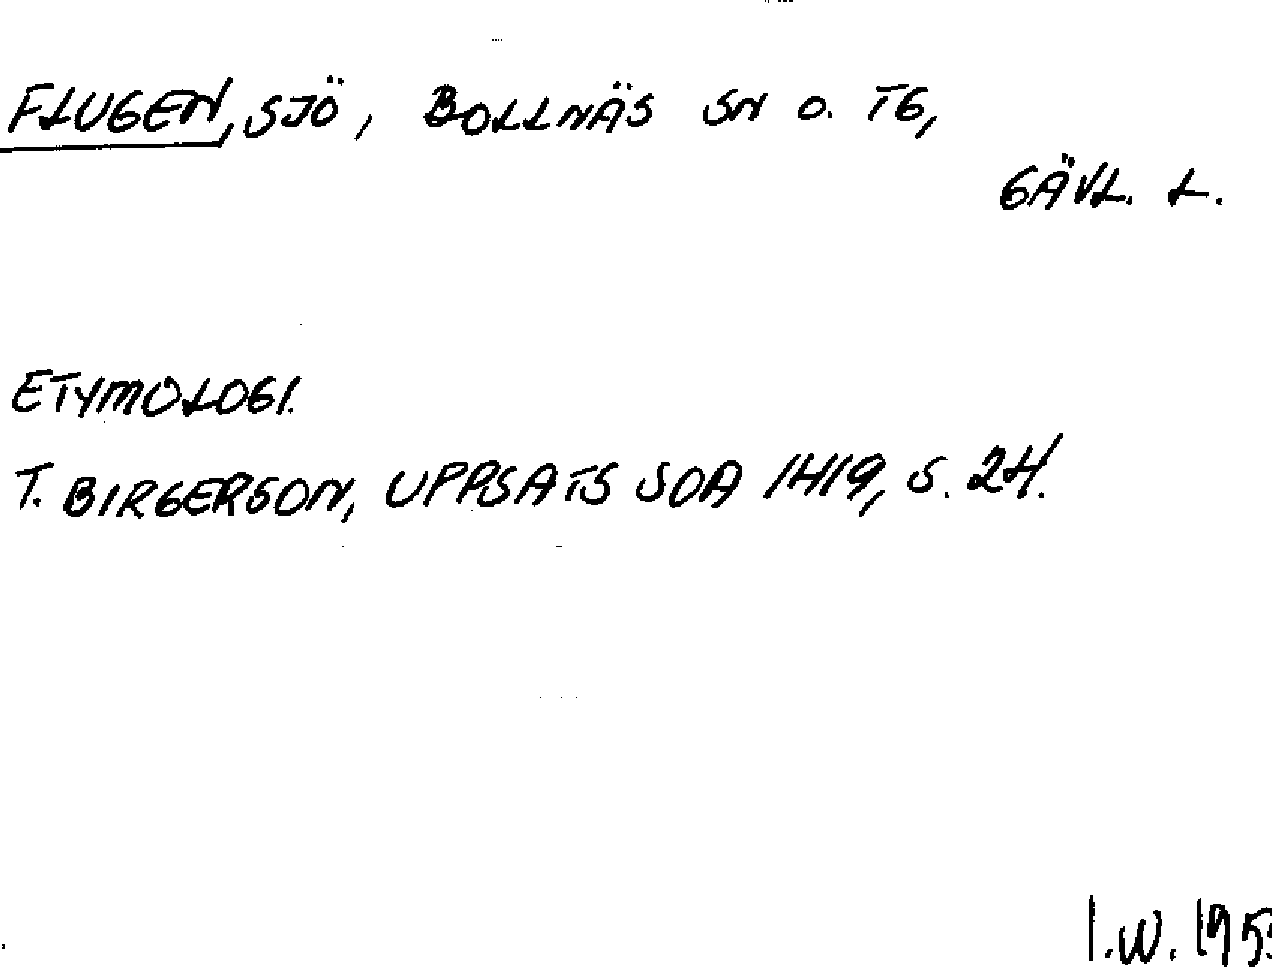 FLUGEN, SJÖ, BOLLNÄS SN O. TG,
GÄVL. L.
ETYMOLOGI.
T. BIRGERSON, UPPSATS SOA 1419, S. 24.
I.W.